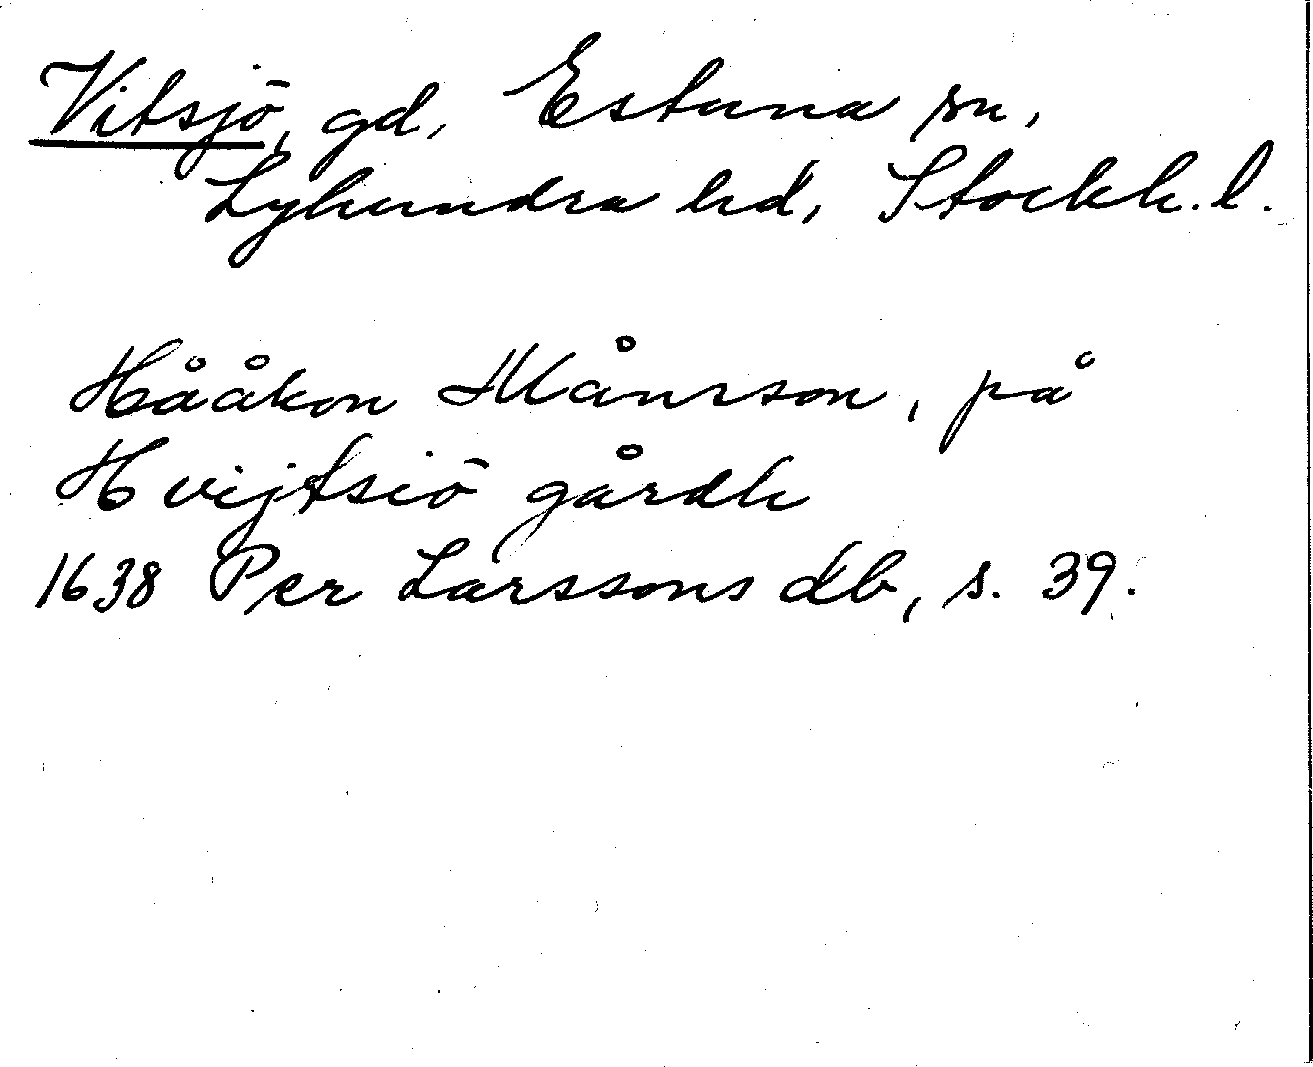 Vitsjö, gd, Estuna sn,
Lyhundra hd, Stockh. l.
Hååkon Månsson, på
Hvijtsiö gårdh
1638 Per Larssons db, s. 39.